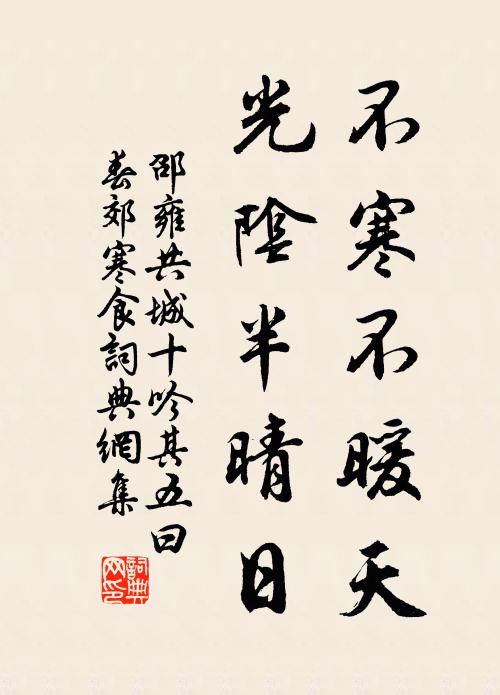 不寒不暖天
光陰半晴日
邵雍共城十吟其五曰
春郊寒食詞典網集
詞典
网印